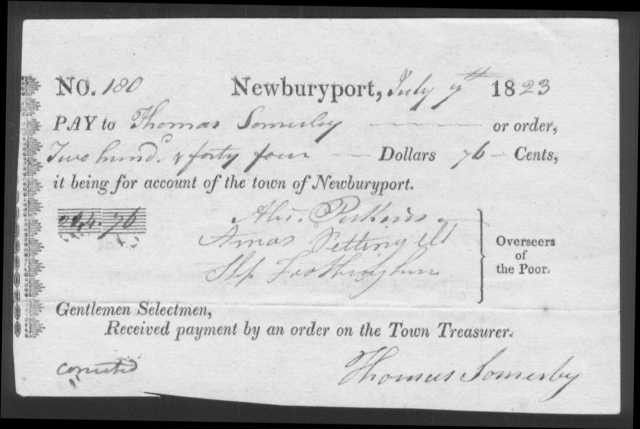 NO. 180 Newburyport, July 7th 1823
PAY to Thomas Somerby or order,
Two hund. & forty four Dollars 76 Cents,
it being for account of the town of Newburyport.
244.76
Amos Pettingell
Overseers
of
the Poor.
Gentlemen Selectmen,
Received payment by an order on the Town Treasurer.
Thomas Somerby